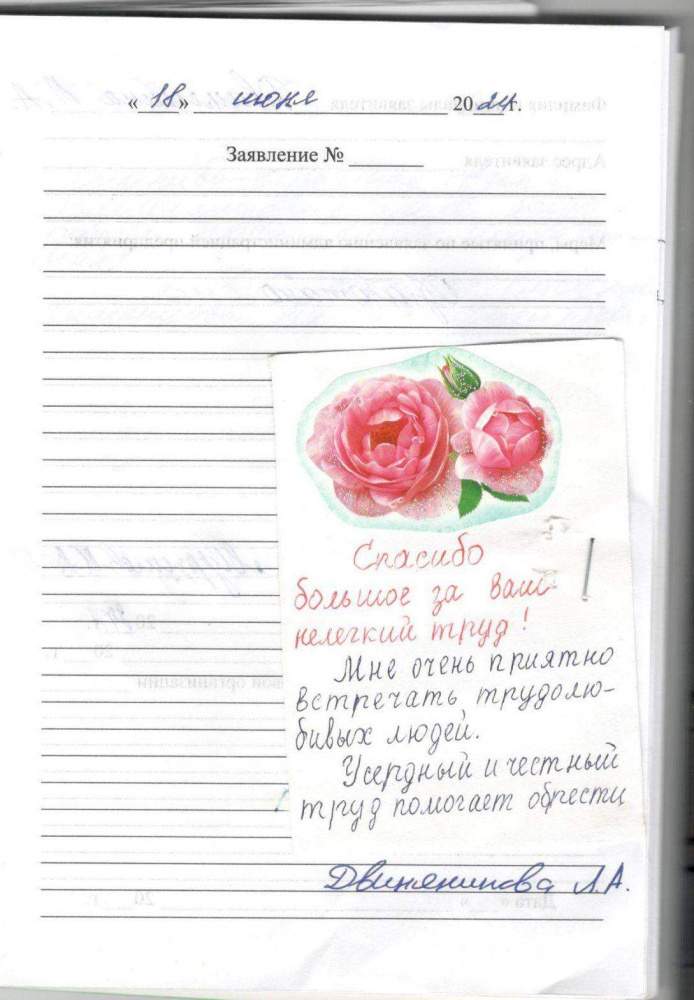 « 18 » июня 2024 г.
Заявление №
Спасибо
большое за Ваш
нелегкий труд!
Мне очень приятно
встречать трудолю-
бивых людей.
Усердный и честный
труд помогает обрести
Двиняникова Л.А.